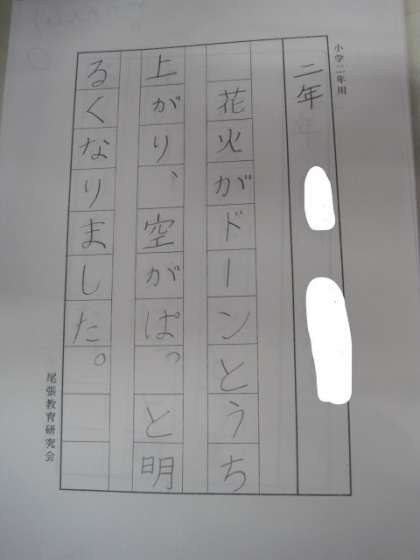 小学二年用
二年
花火がドーンとうち
上がり、空がぱ。と明
るくなりました。
尾張教育研究会